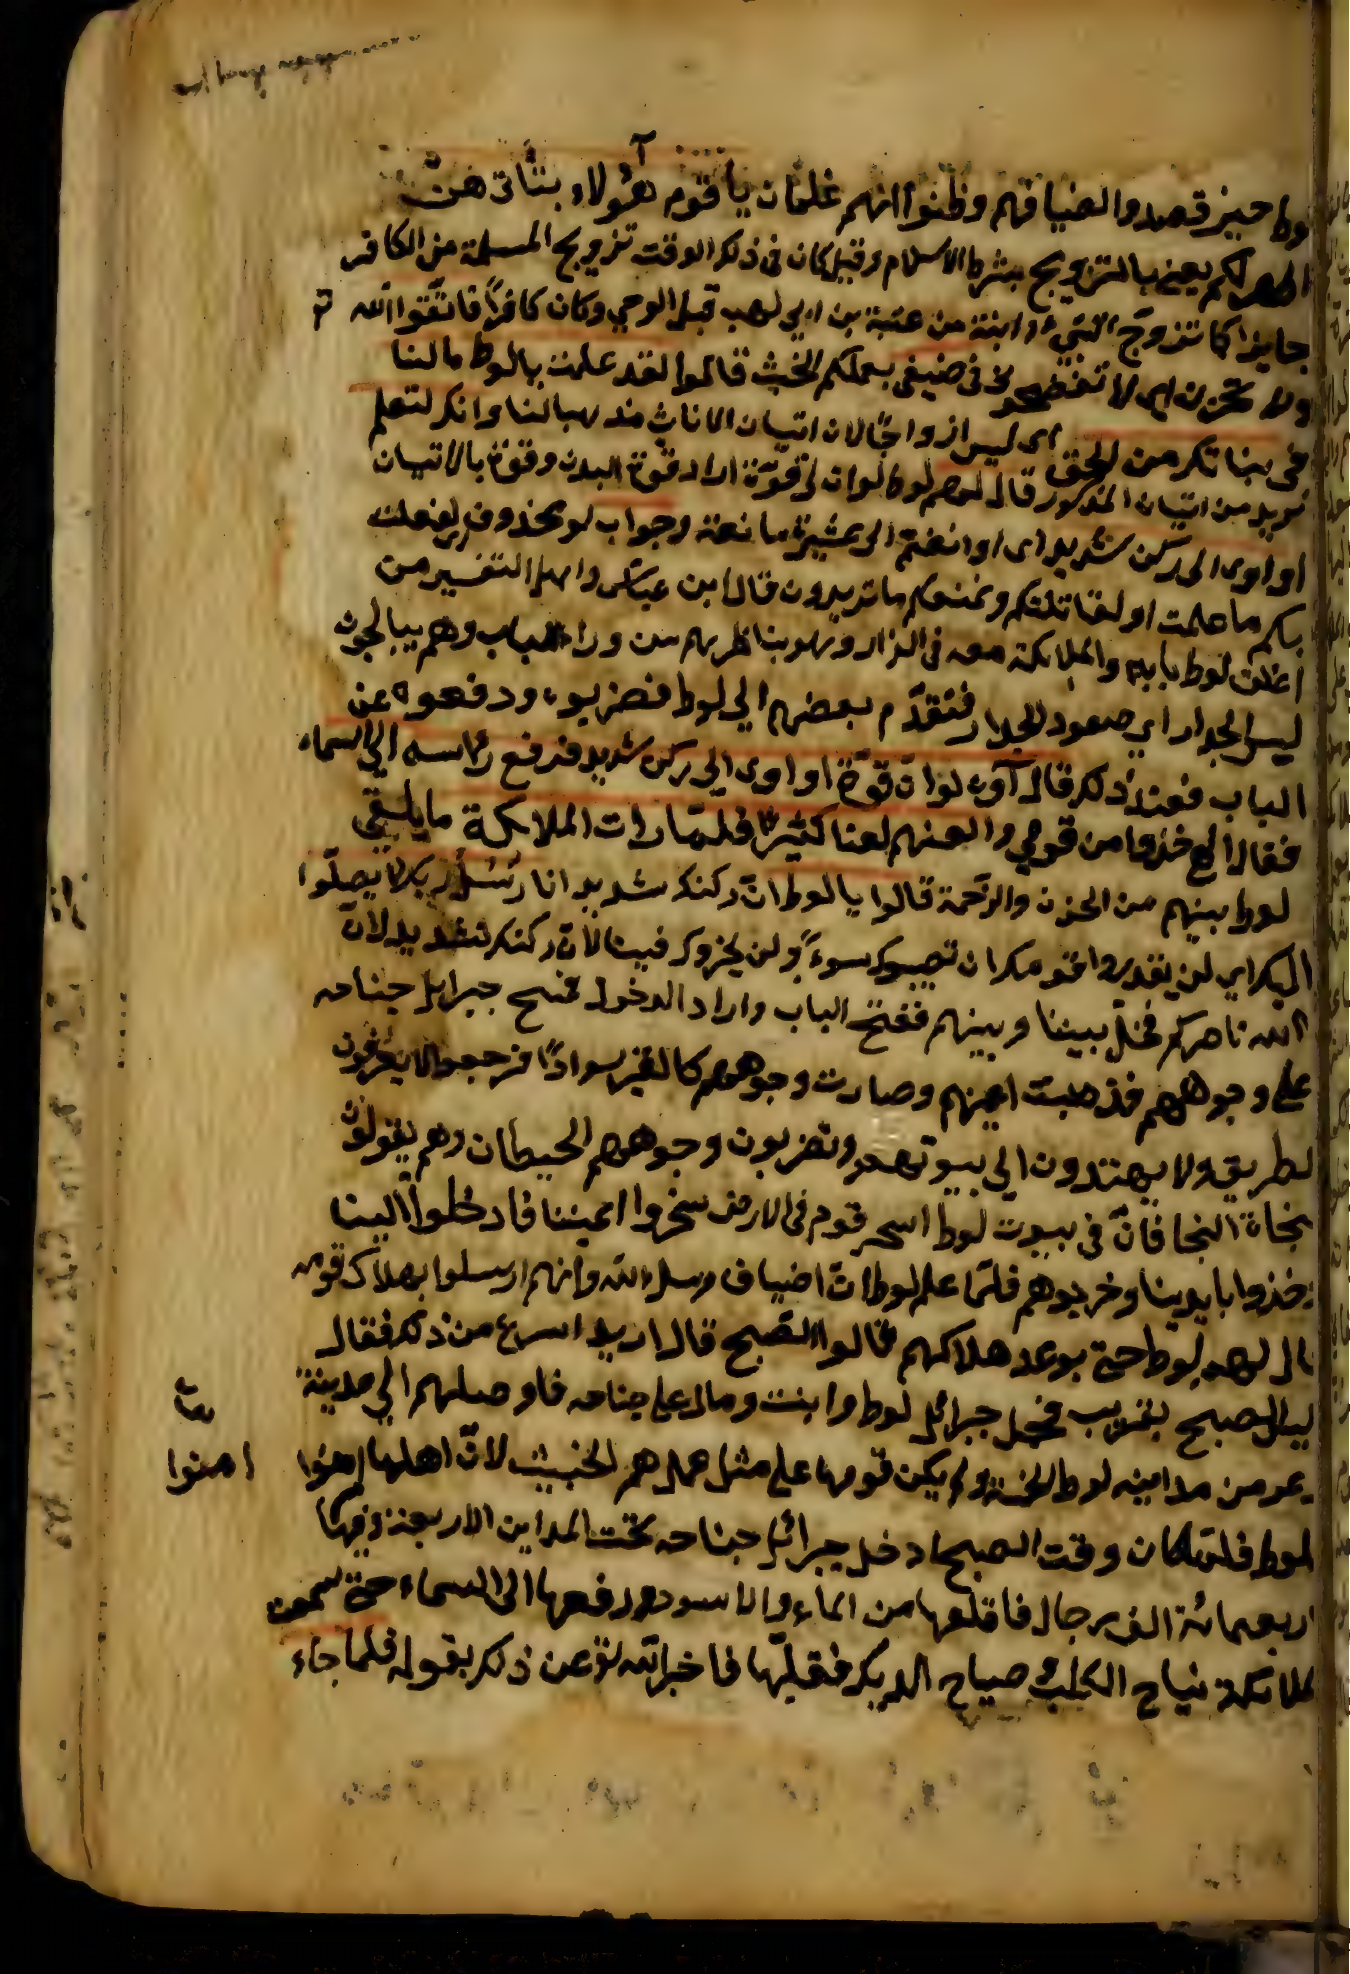 لوط حين قصدوا لضيافهم وظنوا انهم غلمان يا قوم هؤلاء بناتى هنّ
اطهر لكم يعنى بالتزويج بشرط الاسلام وقيل كان فى ذلك الوقت تزويج المسلمة من الكافر
جايزا كما تزوج النبى ابنته من عتبة بن ابى لهب قبل الوحي وكان كافرا فاتقوا الله
ولا تخزون اى لا تفضحو نى فى ضيفى بعملكم الخبث قالوا لقد علمت يالوط مالنا
فى بناتك من الحق اى ليس ازواجا لان اتيان الاناث وانك لتعلم
نريد من اتيان المذكور قال لهم لوط لو ان لى قوة اراد قوة البدن وقوة بالاتيان
او اوى الى ركن شديد اى او انضم الى عشيرة مانعة وجواب لو محذوف لفعلت
بكم ما علمت او لقاتلتكم ومنعتكم ما تريدون قال ابن عباس واهل التفسير من
اغلق لوط بابه والملائكة معه فى الدار وهو يناظرهم من وراء الباب وهم يعالجون
ليس الجدار اي صعود الجدار فتقدّم بعضهم الي لوط فضربوه ودفعوه عن
الباب فعند ذلك قال آوه لو ان لى قوّة او اوى الي ركن شديد فرفع رأسه الي السماء
فقال الهى خذ من قومي والعنهم لعنا كثيرا فلمّا رات الملائكة ما يلقي
لوط بينهم من الحزن والرّحمة قالوا يا لوط انّ ركنك شديد انا رسل ربك لا يصلّوا
اليك اي لن يقدروا قومك ان تصيبوك سوءً ولن يخزوك فينا لانّ ركنك لشديد لانّ
الله ناصركم فخلّ بيننا وبينهم ففتح الباب واراد الدخول فمسح جبرايل جناحه
على وجوههم فذهبت اعينهم وصارت وجوههم كالقير سوادًا فرجعوا لا يعرفون
لطريقه ولا يهتدون الي بيوتهم وتضربون وجوههم الحيطان وهم يقولون
نجاة النجا فانّ فى بيوت لوط اسحر قوم فى الارض سخروا اعيننا فادخلوا الينا
خذوا بايدينا وخرجوهم فلمّا علم لوط انّ اضياف رسل الله وانهم ارسلوا بهلاك قومه
قال لهم لوط حتى يوعد هلاكهم قالوا الصّبح قال اريد اسرع من ذلك فقال
ليس الصبح بقريب فحمل جبرائل لوط وابنته وماله على جناحه فاوصلهم الي مدينة
عر من مداينه لوط الخمسة ولم يكن قومها على مثل عملهم الخبيث لانّ اهلها امنوا
امنوا
لوط فلمّا كان وقت الصبح ادخل جبرائل جناحه تحت المداين الاربعة وفيها
اربعمائة الف رجال فاقلعها من الماء والاسود ورفعها الى السماء حتى سمعت
ملائكة نياح الكلب وصياح الديك فقلبّها فاخبر الله تعالى عن ذلك بقوله فلما جاء